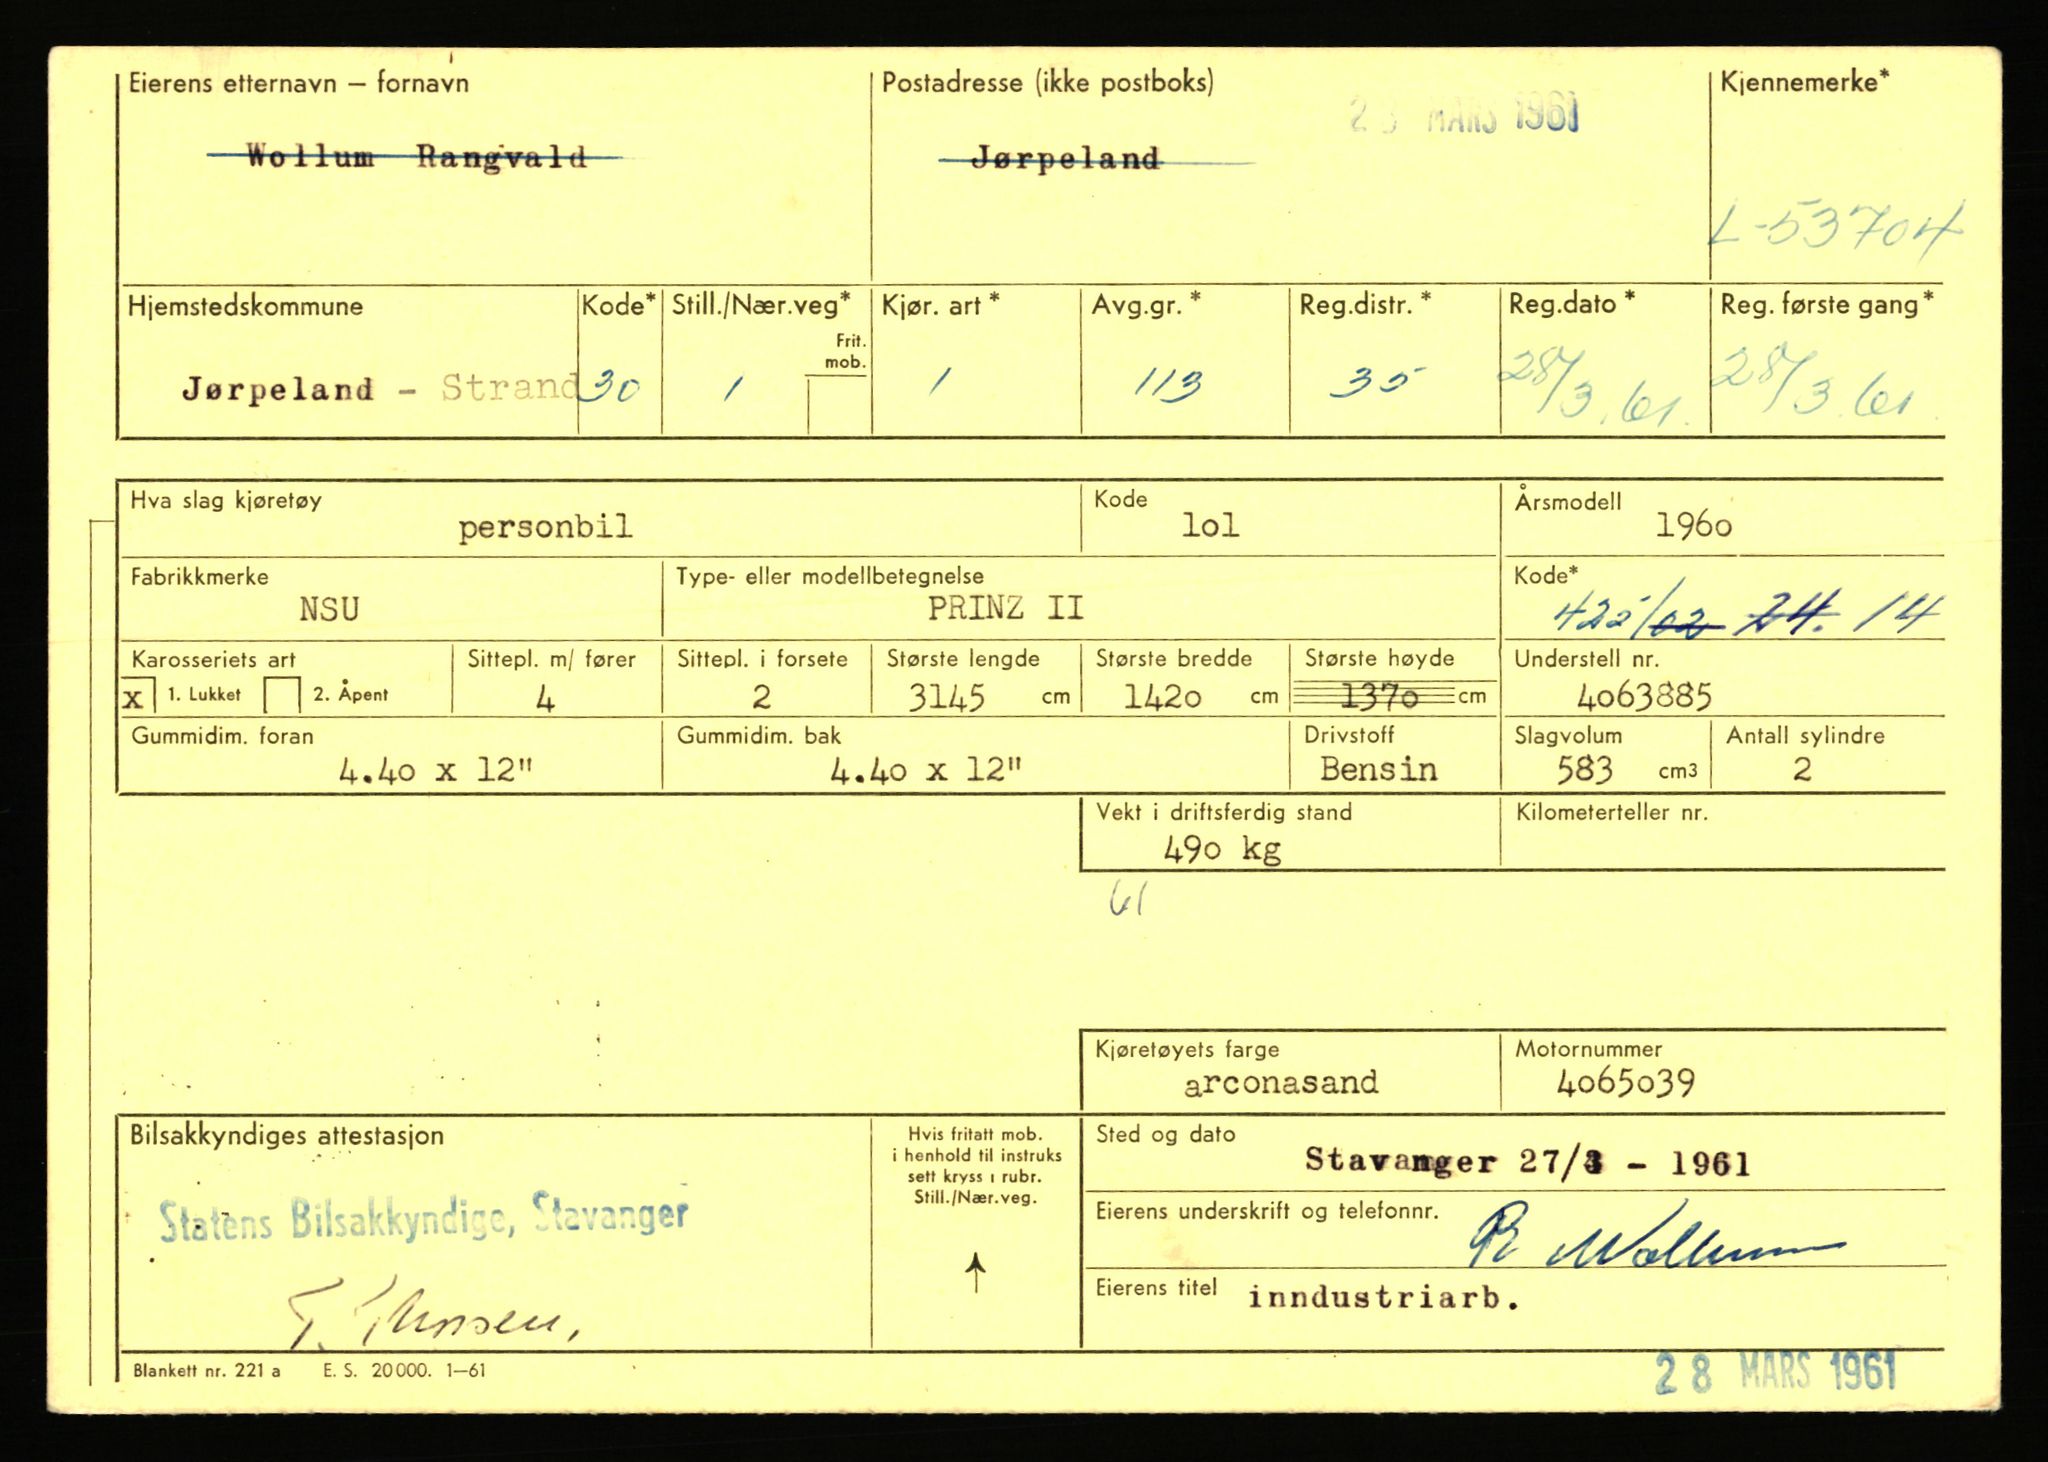 Eierens etternavn – fornavn
Postadresse (ikke postboks)
Kjennemerke*
28 MARS 1961
Wollum Rangvald
Jørpeland
L-53704
Hjemstedskommune
Kode*
Still./Nær.veg*
Kjør. art*
Avg.gr.*
Reg.distr.*
Reg.dato*
Reg. første gang*
Frit.
mob.
Jørpeland - Strand
30
1
1
113
35
28/3.61.
28/3.61.
Hva slag kjøretøy
personbil
Kode
lol
Årsmodell
196o
Fabrikkmerke
NSU
Type- eller modellbetegnelse
PRINZ II
Kode*
425/02 24. 14
Karosseriets art
x 1. Lukket 2. Åpent
Sittepl. m/ fører
4
Sittepl. i forsete
2
Største lengde
3145 cm
Største bredde
142o cm
Største høyde
137o cm
Understell nr.
4o63885
Gummidim. foran
4.4o x 12"
Gummidim. bak
4.4o x 12"
Drivstoff
Bensin
Slagvolum
583 cm3
Antall sylindre
2
Vekt i driftsferdig stand
49o kg
Kilometerteller nr.
61
Kjøretøyets farge
arconasand
Motornummer
4o65o39
Bilsakkyndiges attestasjon
Statens Bilsakkyndige, Stavanger
Hvis fritatt mob.
i henhold til instruks
sett kryss i rubr.
Still./Nær.veg.
Sted og dato
Stavanger 27/3 - 1961
Eierens underskrift og telefonnr.
R Wollum
Eierens titel
inndustriarb.
Blankett nr. 221 a E. S. 20000. 1–61
28 MARS 1961